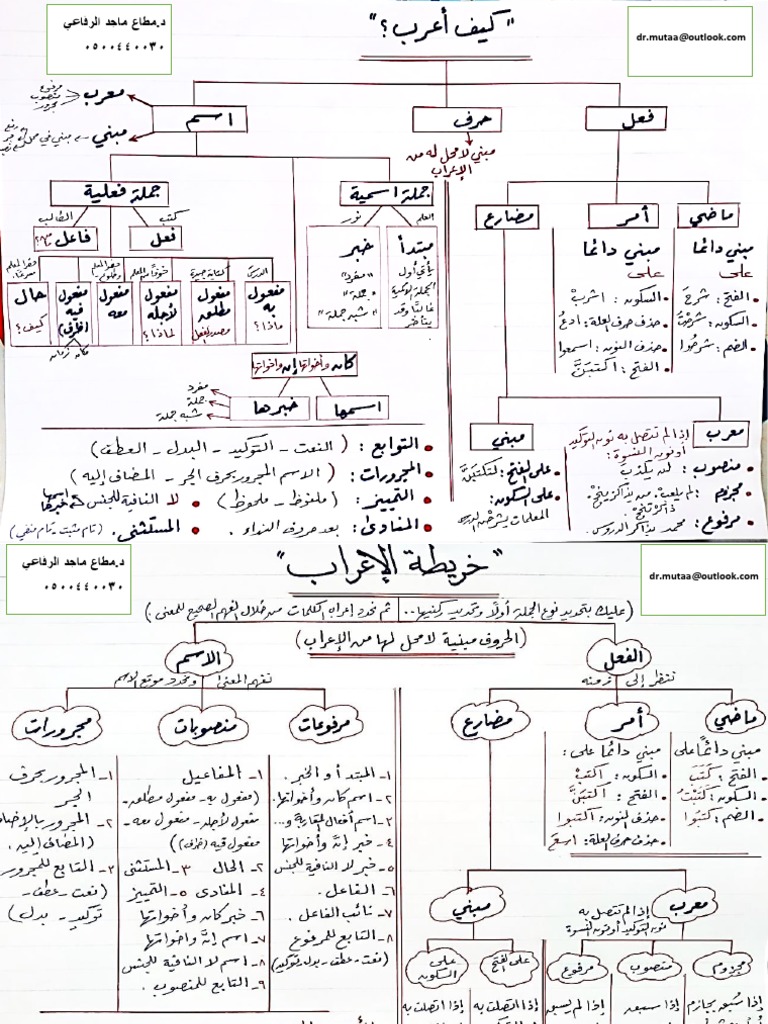 د.مطاع ماجد الرفاعي
٠٥٠٠٤٤٠٠٣٠
"كيف أعرب؟"
dr.mutaa@outlook.com
اسم
حرف
فعل
معرب
مرفوع
منصوب
مجرور
مبني
مبني لا محل له من
الإعراب
جملة فعلية
جملة اسمية
مضارع
أمر
ماضي
الطالب
كتب
نور
العلم
فاعل
فعل
خبر
"مفرد"
"جملة"
"شبه جملة"
مبتدأ
يأتي أول
الجملة الاسمية
غالبًا وقد
يتأخر
مبني دائمًا
على
السكون: اشربْ
حذف حرف العلة: ادعُ
حذف النون: اسمعوا
الفتح: اكتبَنَّ
مبني دائمًا
على
الفتح: شرحَ
السكون: شرحْتُ
الضم: شرحُوا
الدرسَ
مفعول
به
ماذا؟
كتابة جيدة
مفعول
مطلق
مصدر الفعل
مفعول
لأجله
لماذا؟
مفعول
معه
مفعول
فيه
(ظرف)
مكان
زمان
حال
كيف؟
كان وأخواتها
إن وأخواتها
خبرها
اسمها
مفرد
جملة
شبه جملة
مبني
معرب
إذا لم تتصل به نون التوكيد
أو نون النسوة:
منصوب: لن يكذبَ
مرفوع: محمد يذاكر الدروس.
على الفتح: لتكتبَنَّ
على السكون:
المعلمات يشرحْن الدرس
التوابع: (النعت - التوكيد - البدل - العطف)
المجرورات: (الاسم المجرور بحرف الجر - المضاف إليه)
التمييز: (ملفوظ - ملحوظ)
لا النافية للجنس
اسمها
خبرها
المنادى: بعد حروف النداء.
المستثنى. (تام مثبت - تام منفي)
د.مطاع ماجد الرفاعي
٠٥٠٠٤٤٠٠٣٠
"خريطة الإعراب"
dr.mutaa@outlook.com
(عليك بتحديد نوع الجملة أولًا وتحديد ركنيها.. ثم تحدد إعراب الكلمات من خلال الفهم الصحيح للمعنى)
(الحروف مبنية لا محل لها من الإعراب)
الاسم
نفهم المعنى ونحدد موقع الاسم
الفعل
ننظر إلى زمنه
مجرورات
منصوبات
مرفوعات
مضارع
أمر
ماضي
١- المجرور بحرف
الجر
٢- المجرور بالإضافة
(المضاف إليه).
٣- التابع للمجرور
(نعت - عطف -
توكيد - بدل)
١- المفاعيل
(مفعول به - مفعول مطلق -
مفعول لأجله - مفعول معه -
مفعول فيه (ظرف))
٢- الحال ٣- المستثنى
٤- المنادى ٥- التمييز
٦- خبر كان وأخواتها
٧- اسم إنَّ وأخواتها
٨- اسم لا النافية للجنس
٩- التابع للمنصوب.
١- المبتدأ والخبر.
٢- اسم كان وأخواتها.
٣- اسم أفعال المقاربة و...
٤- خبر إنَّ وأخواتها
٥- خبر لا النافية للجنس
٦- الفاعل.
٧- نائب الفاعل.
٨- التابع للمرفوع
(نعت - عطف - بدل - توكيد)
مبني دائمًا على:
السكون: اكتبْ
الفتح: اكتبَنَّ
حذف النون: اكتبوا
حذف حرف العلة: اسعَ
مبني دائمًا على
الفتح: كتَبَ
السكون: كتبْتُ
الضم: كتبُوا
مبني
معرب
إذا لم تتصل به
نون التوكيد أو نون النسوة
على
السكون
على الفتح
مرفوع
منصوب
مجزوم
إذا اتصلت به
إذا اتصلت به
إذا لم يسبق
إذا سبق
إذا سُبق بجازم